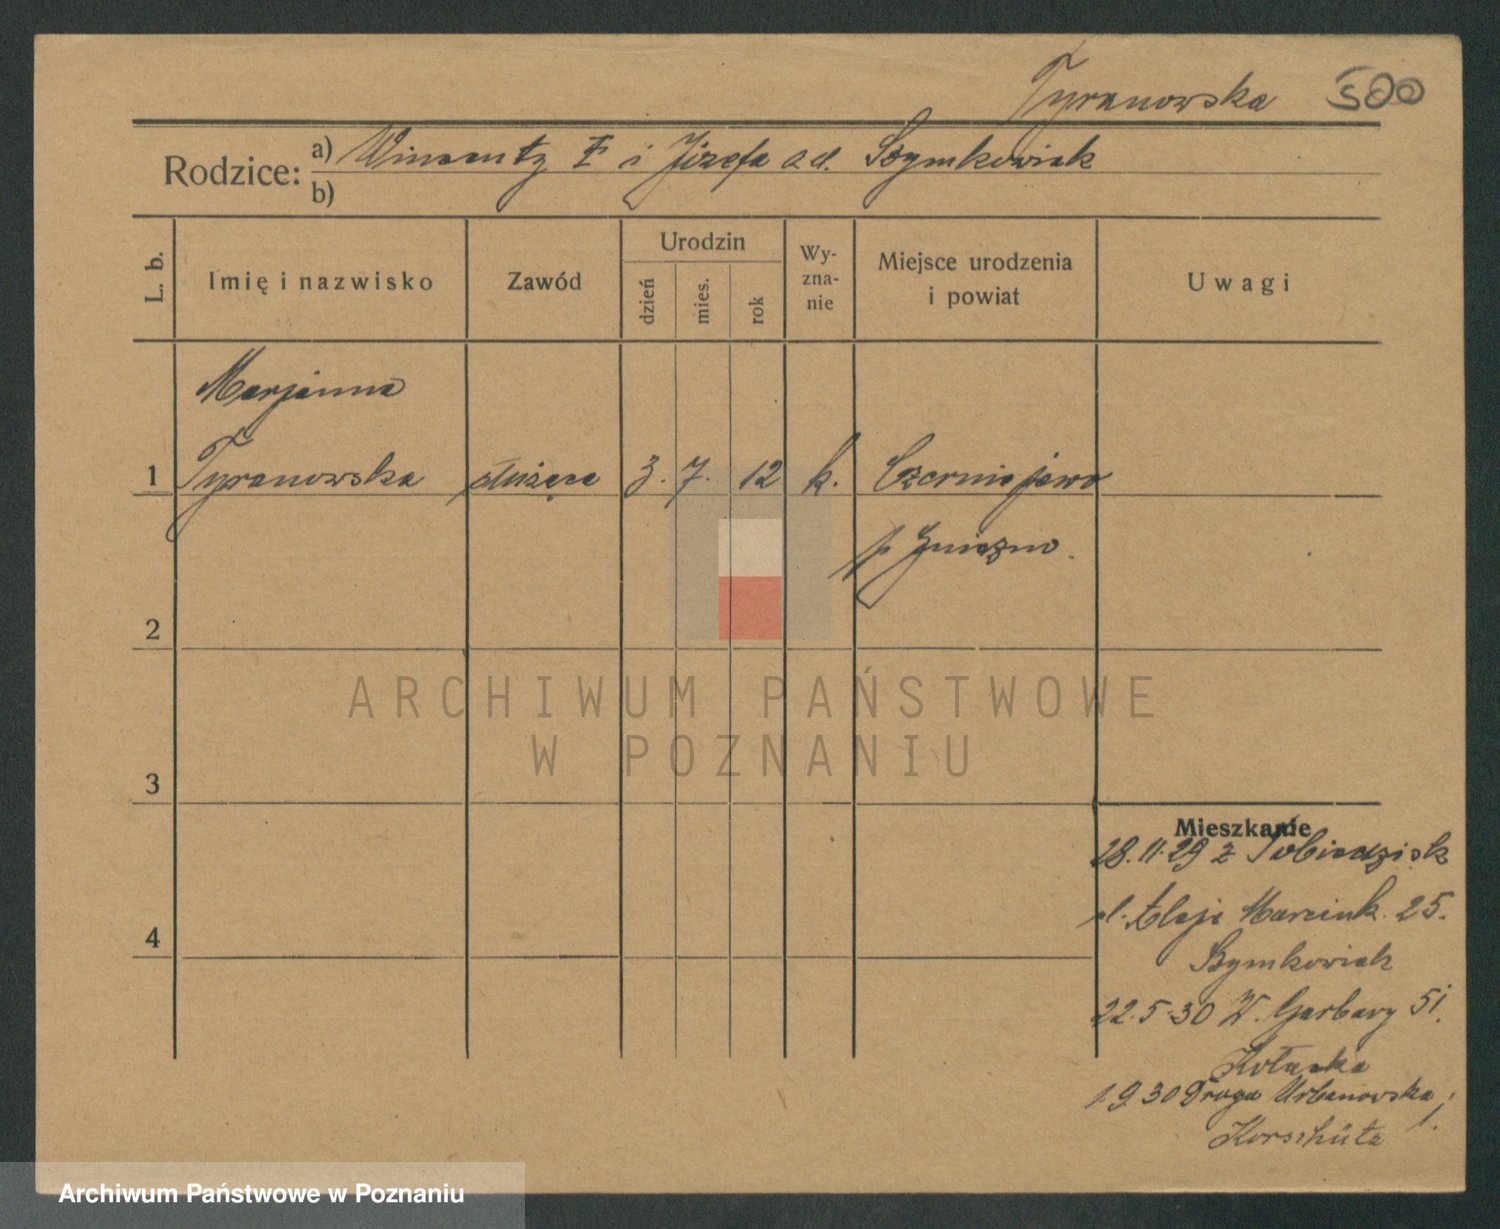 Tyranowska 500
Rodzice: a) Wincenty i Józefa o.d. Szymkowiak
b)
L. b.
Imię i nazwisko
Zawód
Urodzin
dzień
mies.
rok
Wy-
zna-
nie
Miejsce urodzenia
i powiat
Uwagi
Marjanna
1 Tyranowska służąca 3. 7. 12 k. Czerniejewo
p. Gniezno.
2
3
4
Mieszkanie
28.11.29 z Pobiedzisk
Aleje Marcink. 25.
Szymkowiak
22.5.30 W. Garbary 51.
1.9.30 Droga Urbanowska 1.
Korschütz
ARCHIWUM PAŃSTWOWE
W POZNANIU
Archiwum Państwowe w Poznaniu